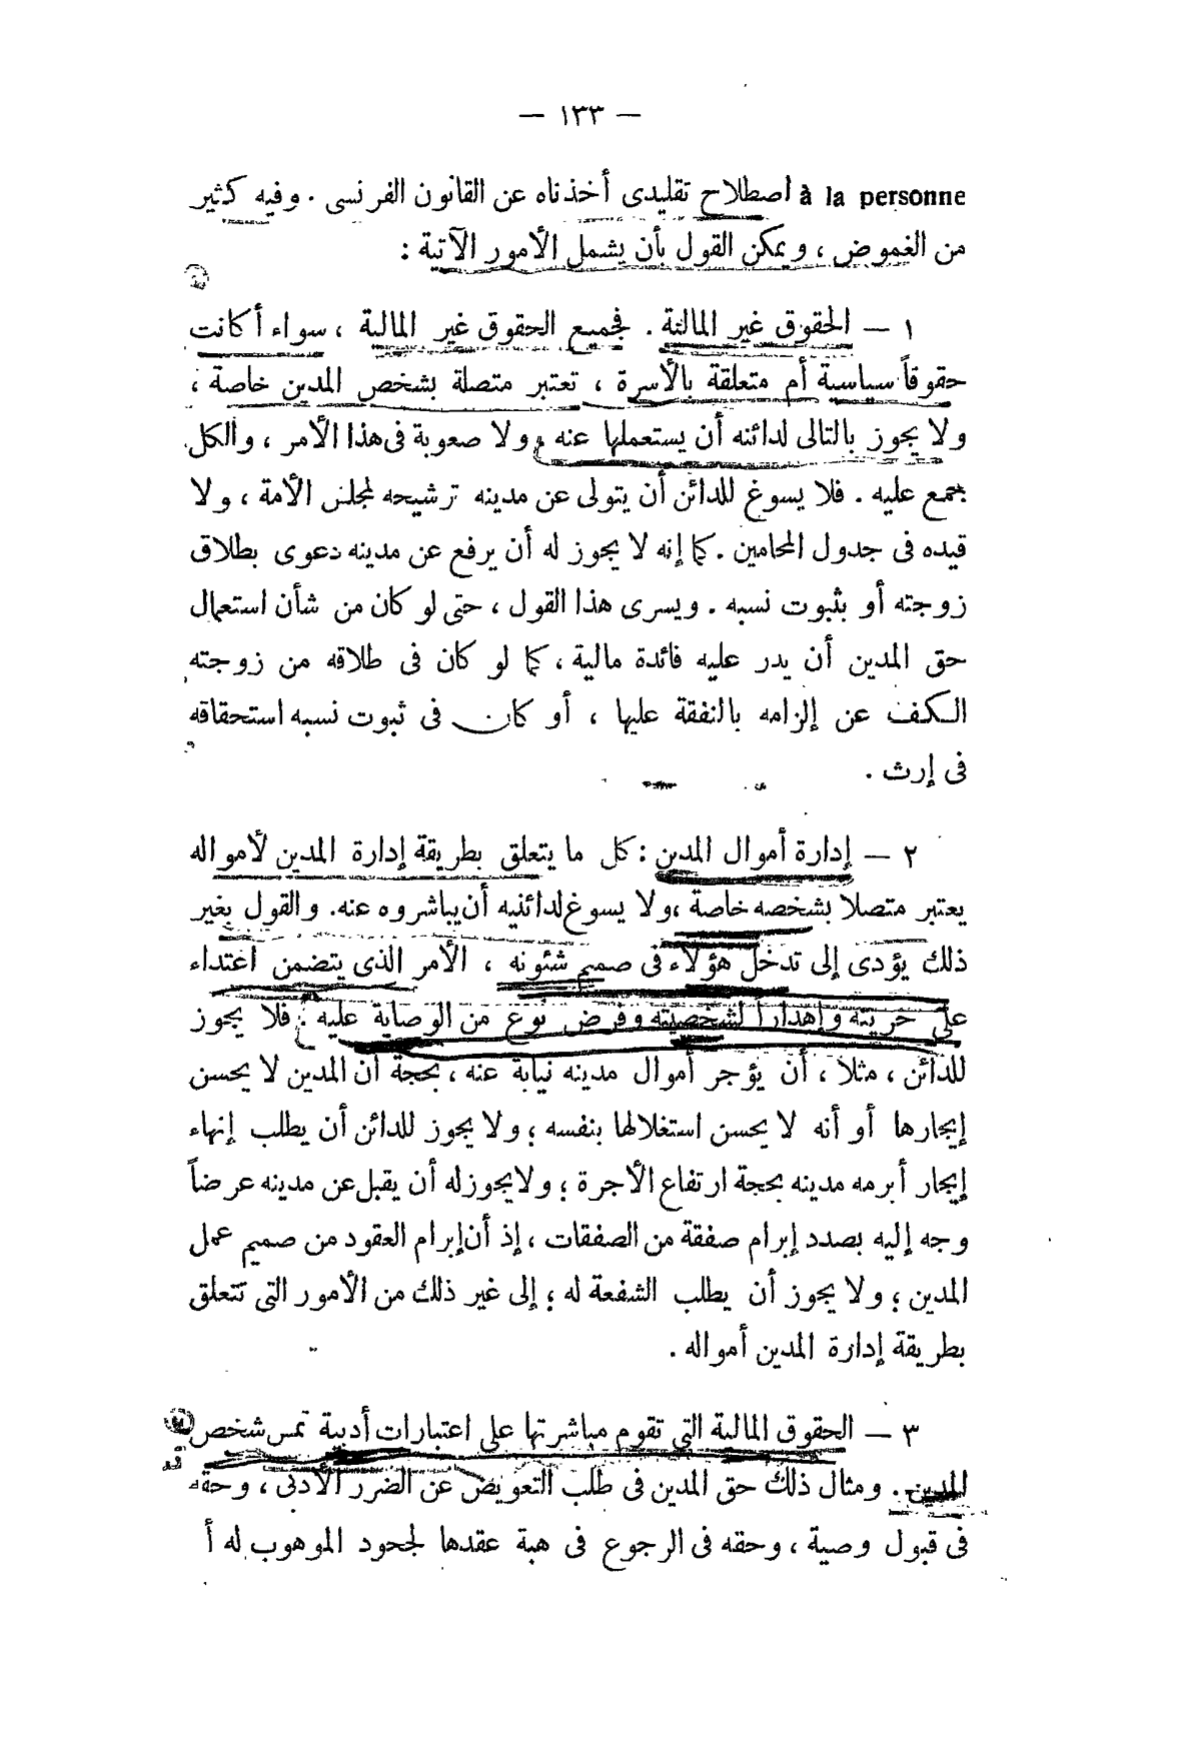 — ١٣٣ —
à la personne اصطلاح تقليدى أخذناه عن القانون الفرنسى . وفيه كثير
من الغموض ، ويمكن القول بأن يشمل الأمور الآتية :
١ — الحقوق غير المالية . فجميع الحقوق غير المالية ، سواء أكانت
حقوقاً سياسية أم متعلقة بالأسرة ، تعتبر متصلة بشخص المدين خاصة ،
ولا يجوز بالتالى لدائنه أن يستعملها عنه ، ولا صعوبة فى هذا الأمر ، والكل
مجمع عليه . فلا يسوغ للدائن أن يتولى عن مدينه ترشيحه لمجلس الأمة ، ولا
قيده فى جدول المحامين . كما إنه لا يجوز له أن يرفع عن مدينه دعوى بطلاق
زوجته أو بثبوت نسبه . ويسرى هذا القول ، حتى لو كان من شأن استعمال
حق المدين أن يدر عليه فائدة مالية ، كما لو كان فى طلاقه من زوجته
الكف عن إلزامه بالنفقة عليها ، أو كان فى ثبوت نسبه استحقاقه
فى إرث .
٢ — إدارة أموال المدين : كل ما يتعلق بطريقة إدارة المدين لأمواله
يعتبر متصلا بشخصه خاصة ، ولا يسوغ لدائنيه أن يباشروه عنه. والقول بغير
ذلك يؤدى إلى تدخل هؤلاء فى صميم شئونه ، الأمر الذى يتضمن اعتداء
على حريته وإهداراً لشخصيته وفرض نوع من الوصاية عليه ؛ فلا يجوز
للدائن ، مثلا ، أن يؤجر أموال مدينه نيابة عنه ، بحجة أن المدين لا يحسن
إيجارها أو أنه لا يحسن استغلالها بنفسه ؛ ولا يجوز للدائن أن يطلب إنهاء
إيجار أبرمه مدينه بحجة ارتفاع الأجرة ؛ ولا يجوز له أن يقبل عن مدينه عرضاً
وجه إليه بصدد إبرام صفقة من الصفقات ، إذ أن إبرام العقود من صميم عمل
المدين ؛ ولا يجوز أن يطلب الشفعة له ؛ إلى غير ذلك من الأمور التى تتعلق
بطريقة إدارة المدين أمواله .
٣ — الحقوق المالية التى تقوم مباشرتها على اعتبارات أدبية تمس شخص
المدين . ومثال ذلك حق المدين فى طلب التعويض عن الضرر الأدبى ، وحقه
فى قبول وصية ، وحقه فى الرجوع فى هبة عقدها لجحود الموهوب له أ